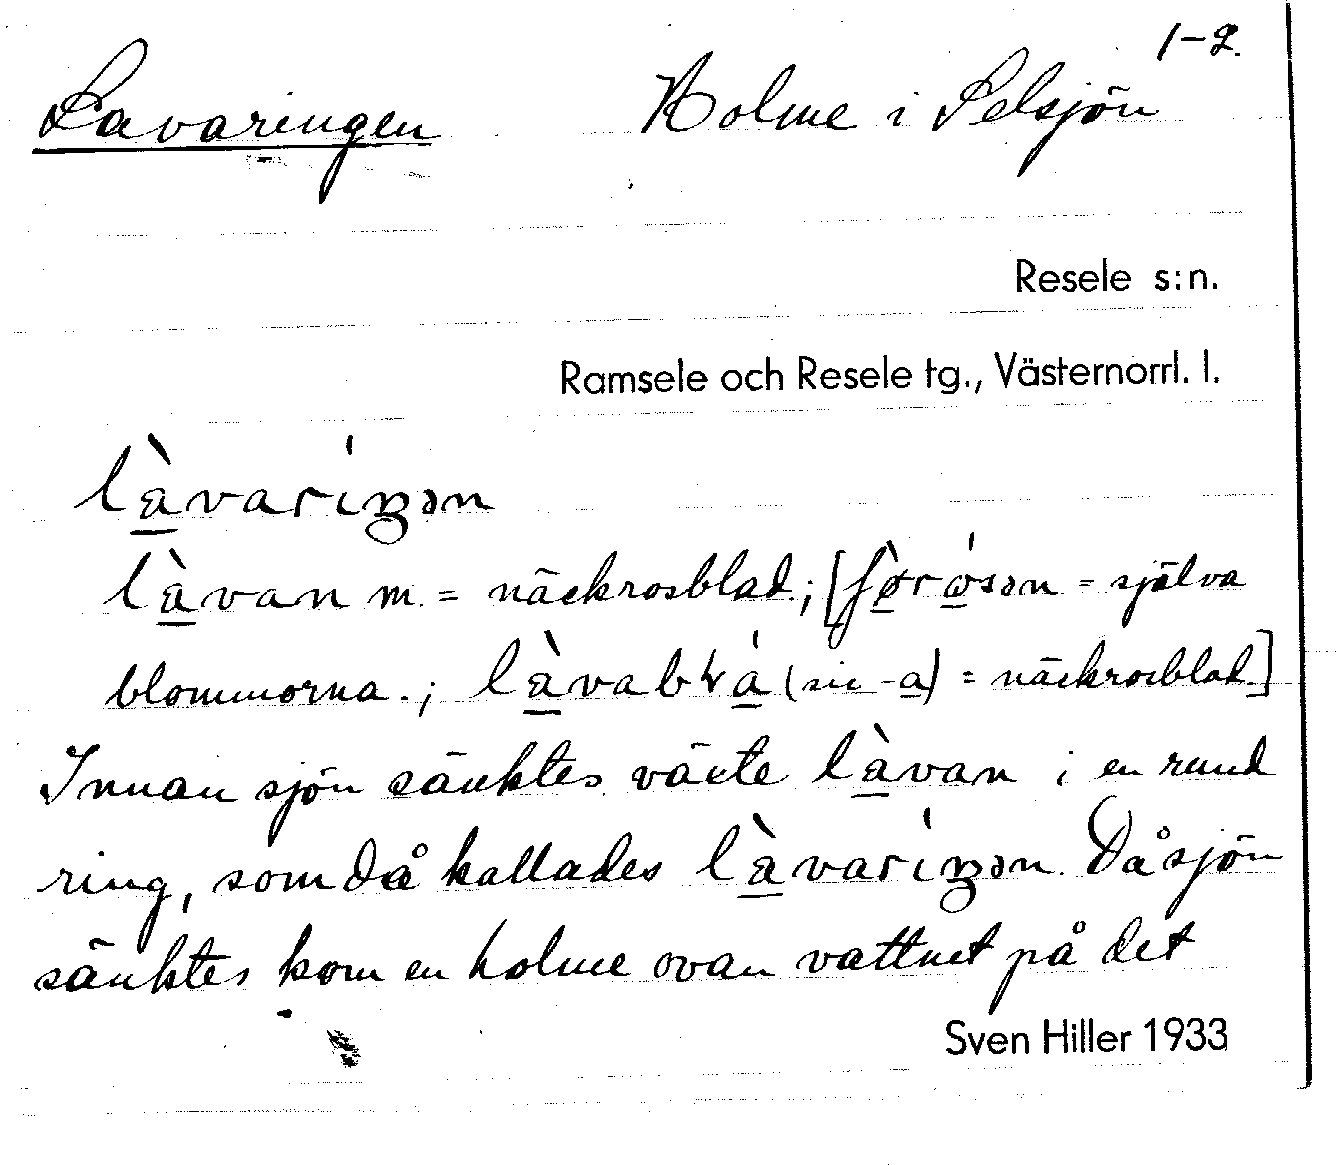 1-2.
Lavaringen Holme i Selsjön
Resele s:n.
Ramsele och Resele tg., Västernorrl. l.
là̱varíŋən
là̱van m. = näckrosblad; [sjø̱̀rǿ̱sən = själva
blommorna.; là̱vabɽá̱ (sic -a̱) = näckrosblad.]
Innan sjön sänktes växte là̱van i en rund
ring, som då kallades là̱varíŋən. Då sjön
sänktes kom en holme ovan vattnet på det
Sven Hiller 1933